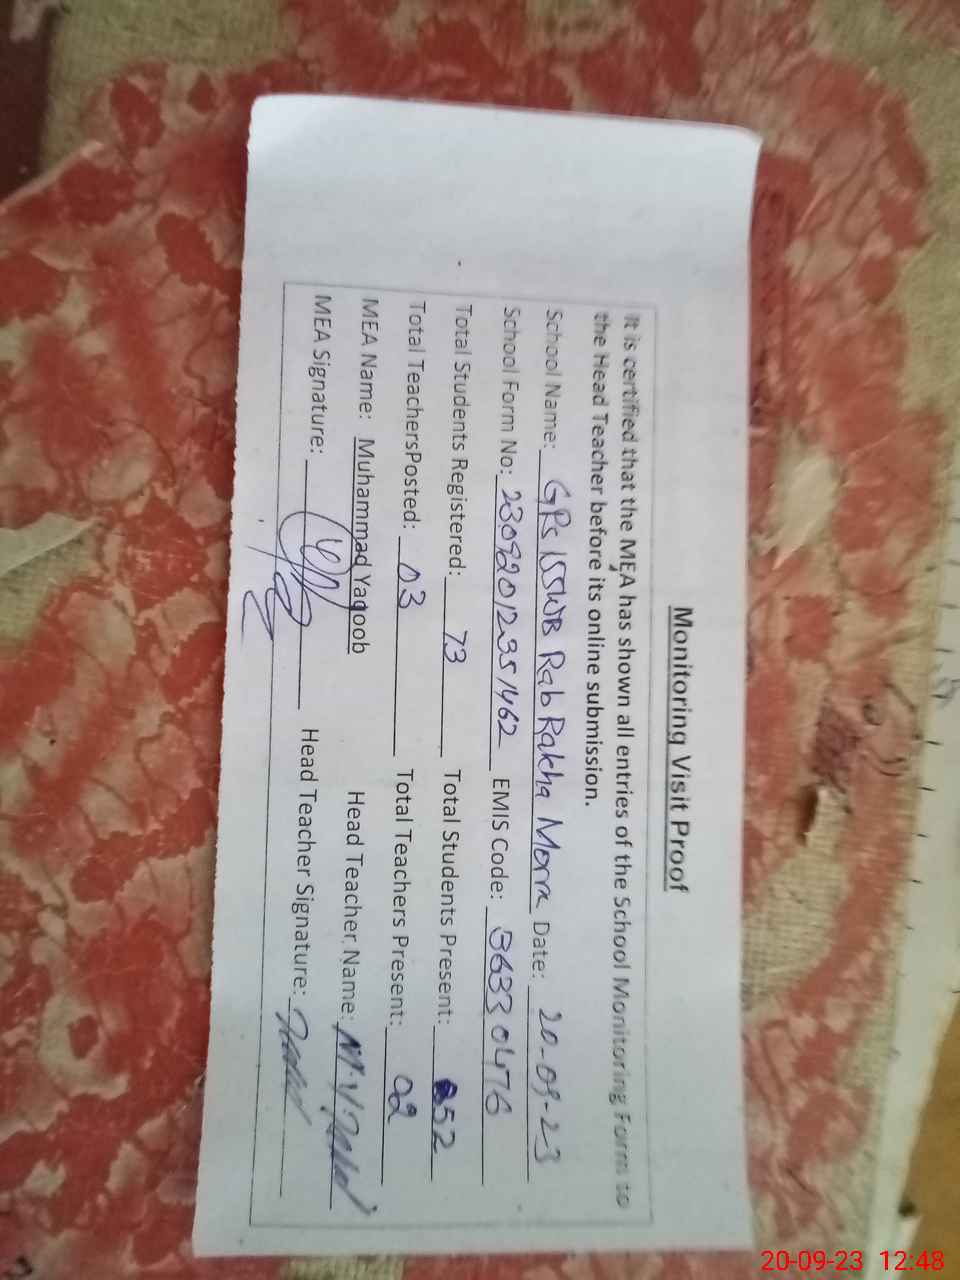 Monitoring Visit Proof
It is certified that the MEA has shown all entries of the School Monitoring Form to
the Head Teacher before its online submission.
School Name: GPS 155WB Rab Rakha Morr Date: 20-09-23
School Form No: 23092012351462 EMIS Code: 36330476
Total Students Registered: 73 Total Students Present: 52
Total TeachersPosted: 03 Total Teachers Present: 02
MEA Name: Muhammad Yaqoob Head Teacher Name:
MEA Signature: Head Teacher Signature:
20-09-23 12:48